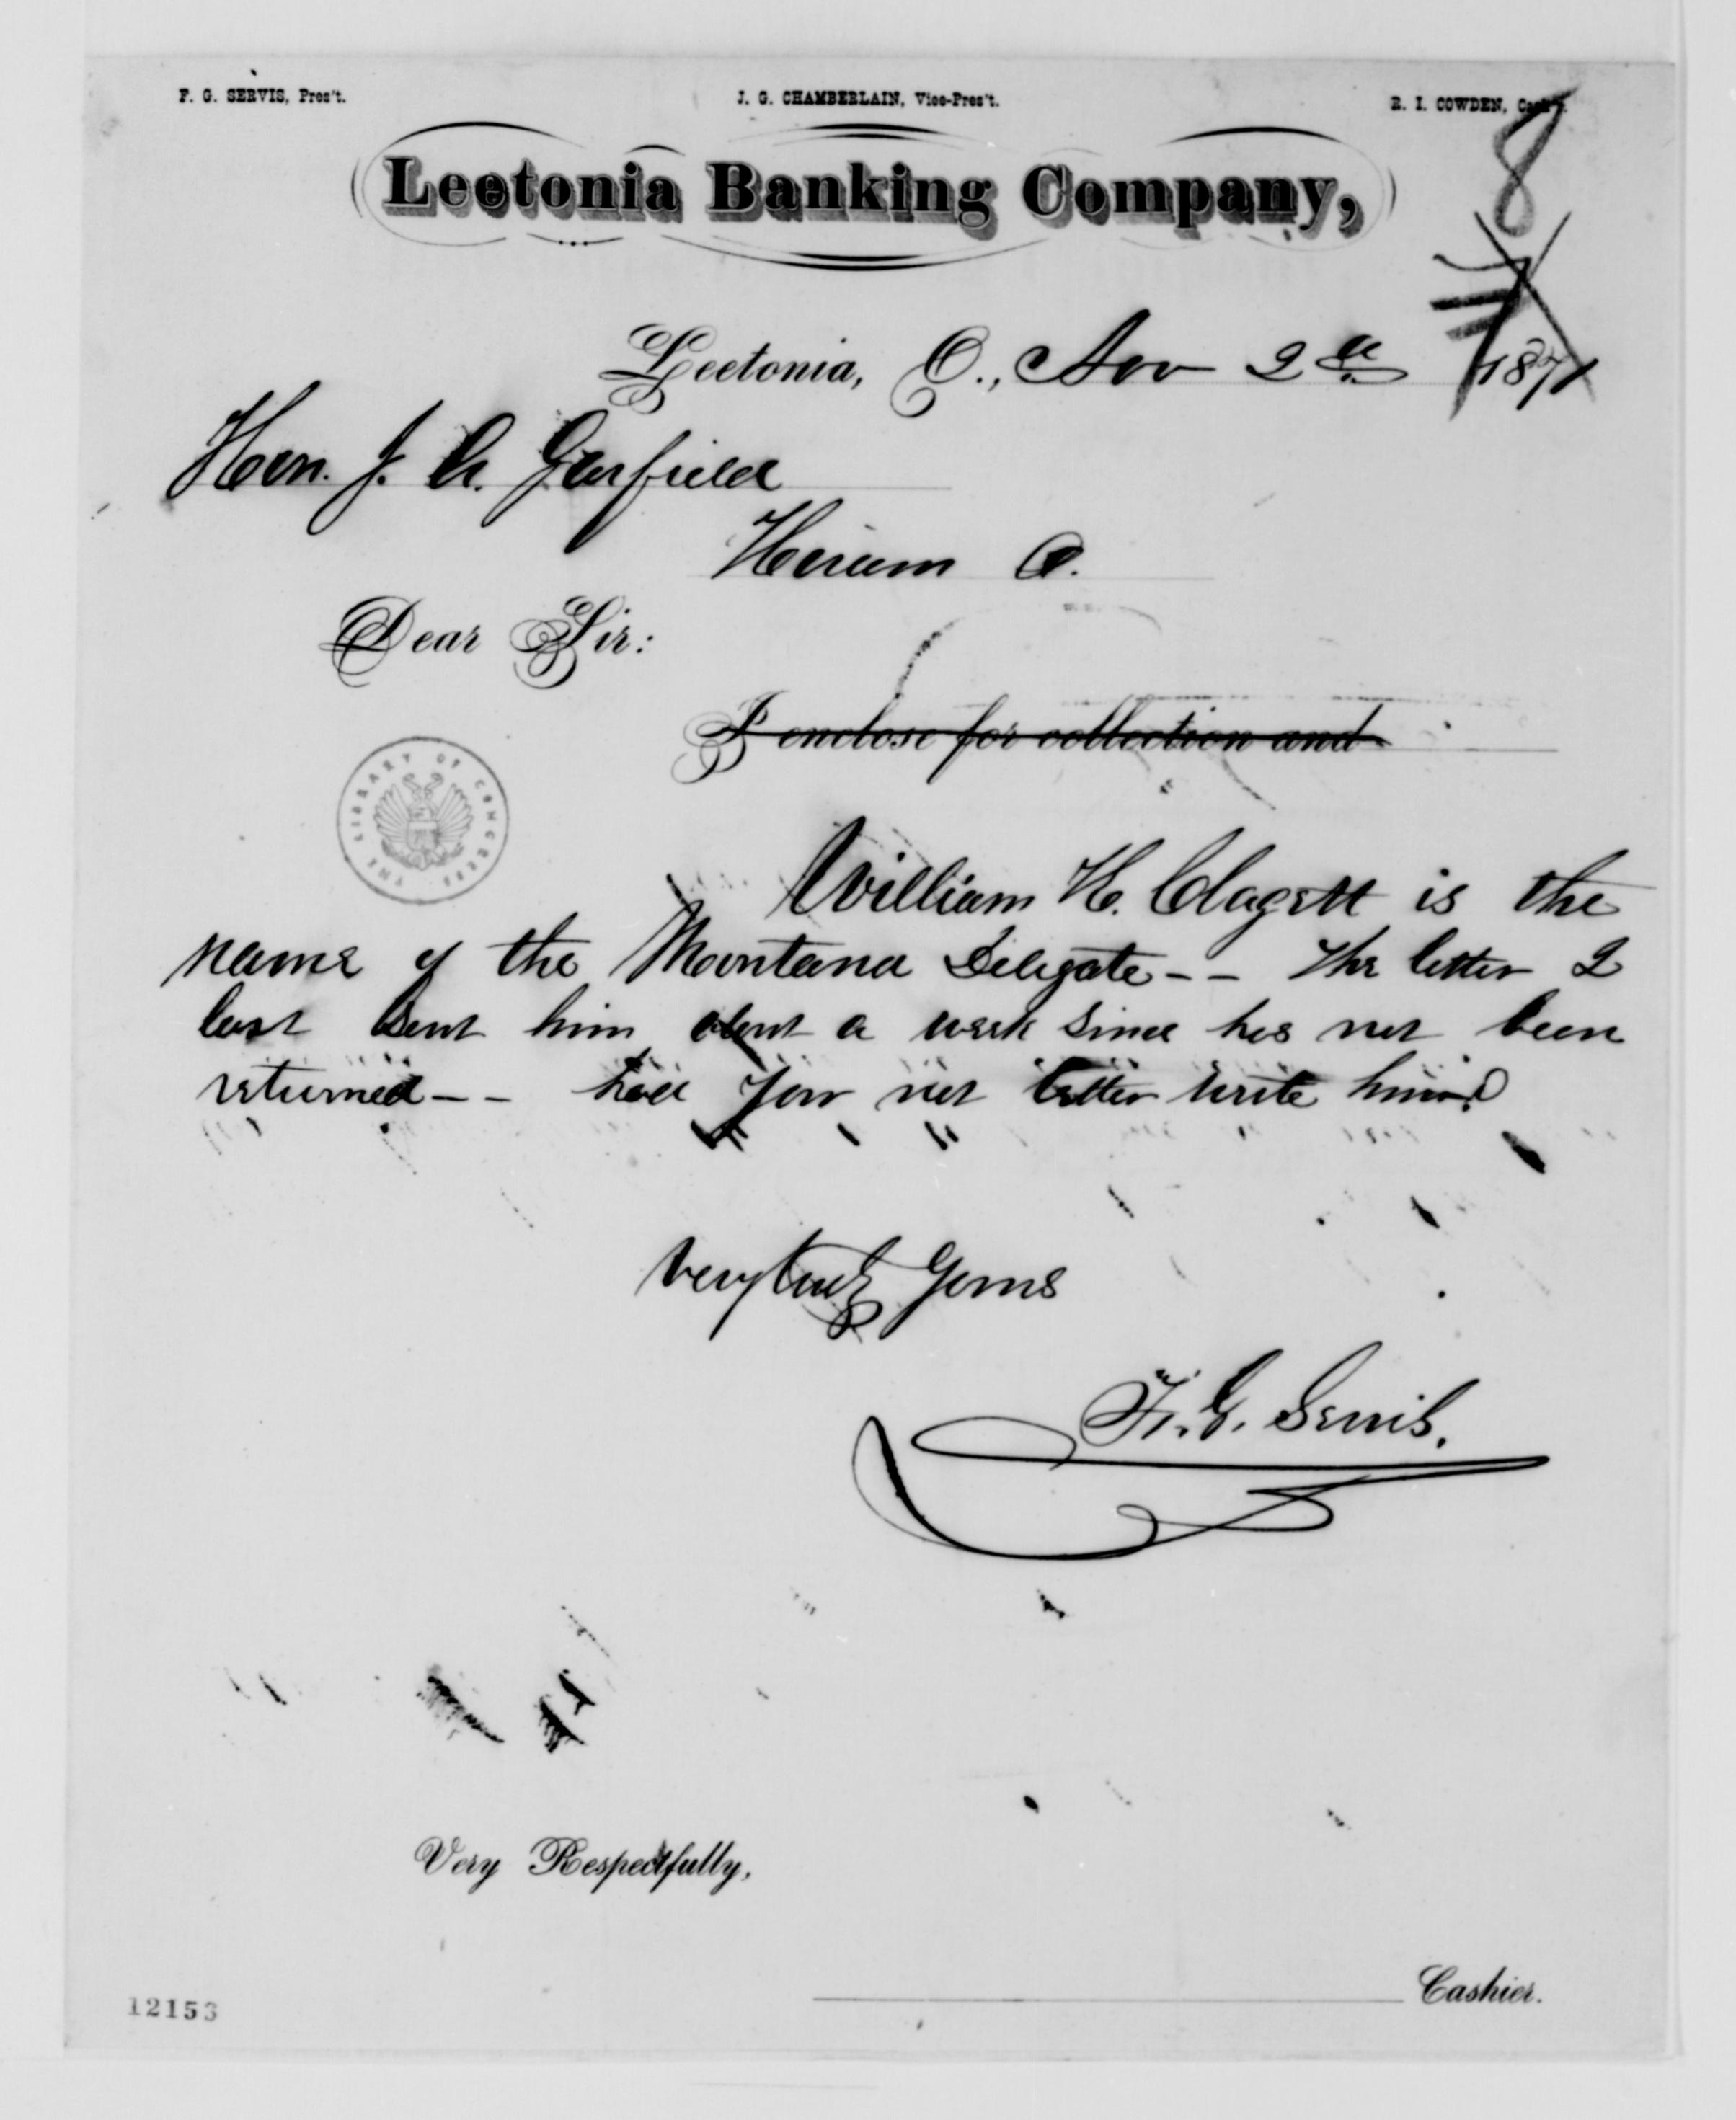 F. G. SERVIS, Pres't. J. G. CHAMBERLAIN, Vice-Pres't. R. I. COWDEN, Cash'r.
8
Leetonia Banking Company,
Leetonia, O., Nov 2d 1871
Hon. J. A. Garfield
Hiram O.
Dear Sir:
I enclose for collection and
THE LIBRARY OF CONGRESS
William H. Clagett is the
name of the Montana Delegate - - The letter I
last sent him about a week since has not been
returned - - had you not better write him?
Very truly Yours
F. G. Servis.
Very Respectfully,
Cashier.
12153